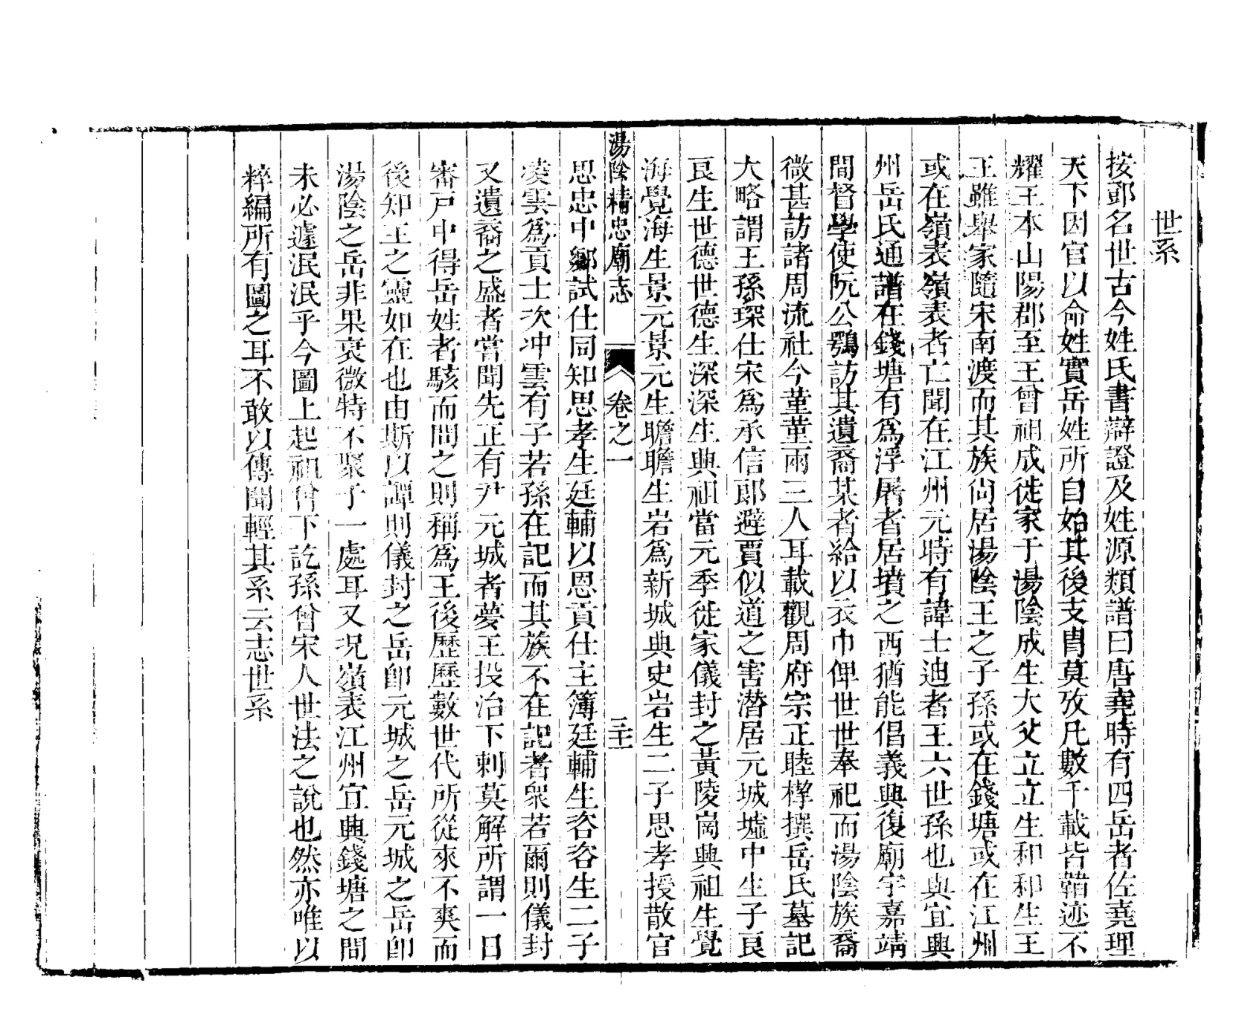 世系
按鄧名世古今姓氏書辯證及姓源類譜曰唐堯時有四岳者佐堯理
天下因官以命姓實岳姓所自始其後支冑莫攷凡數千載皆韜迹不
耀王本山陽郡至王曾祖成徙家于湯陰成生大父立立生和和生王
王雖舉家隨宋南渡而其族尙居湯陰王之子孫或在錢塘或在江州
或在嶺表嶺表者亡聞在江州元時有諱士迪者王六世孫也與宜興
州岳氏通譜在錢塘有爲浮屠者居墳之西猶能倡義興復廟宇嘉靖
間督學使阮公鶚訪其遺裔某者給以衣巾俾世世奉祀而湯陰族裔
微甚訪諸周流社今堇堇兩三人耳載觀周府宗正睦㮮撰岳氏墓記
大略謂王孫琛仕宋爲承信郞避賈似道之害潜居元城墟中生子良
良生世德世德生深深生典祖當元季徙家儀封之黃陵崗典祖生覺
海覺海生景元景元生聸聸生岩爲新城典史岩生二子思孝授散官
湯陰精忠廟志 卷之一 三十二
思忠中鄉試仕同知思孝生廷輔以恩貢仕主簿廷輔生咨咨生二子
凌雲爲貢士次冲雲有子若孫在記而其族不在記者衆若爾則儀封
又遺裔之盛者嘗聞先正有尹元城者夢王投治下刺莫解所謂一日
審戸中得岳姓者駭而問之則稱爲王後歷歷數世代所從來不爽而
後知王之靈如在也由斯以譚則儀封之岳卽元城之岳元城之岳卽
湯陰之岳非果衰微特不聚于一處耳又况嶺表江州宜興錢塘之間
未必遽泯泯乎今圖上起祖曾下訖孫曾宋人世法之說也然亦唯以
粹編所有圖之耳不敢以傳聞輕其系云志世系